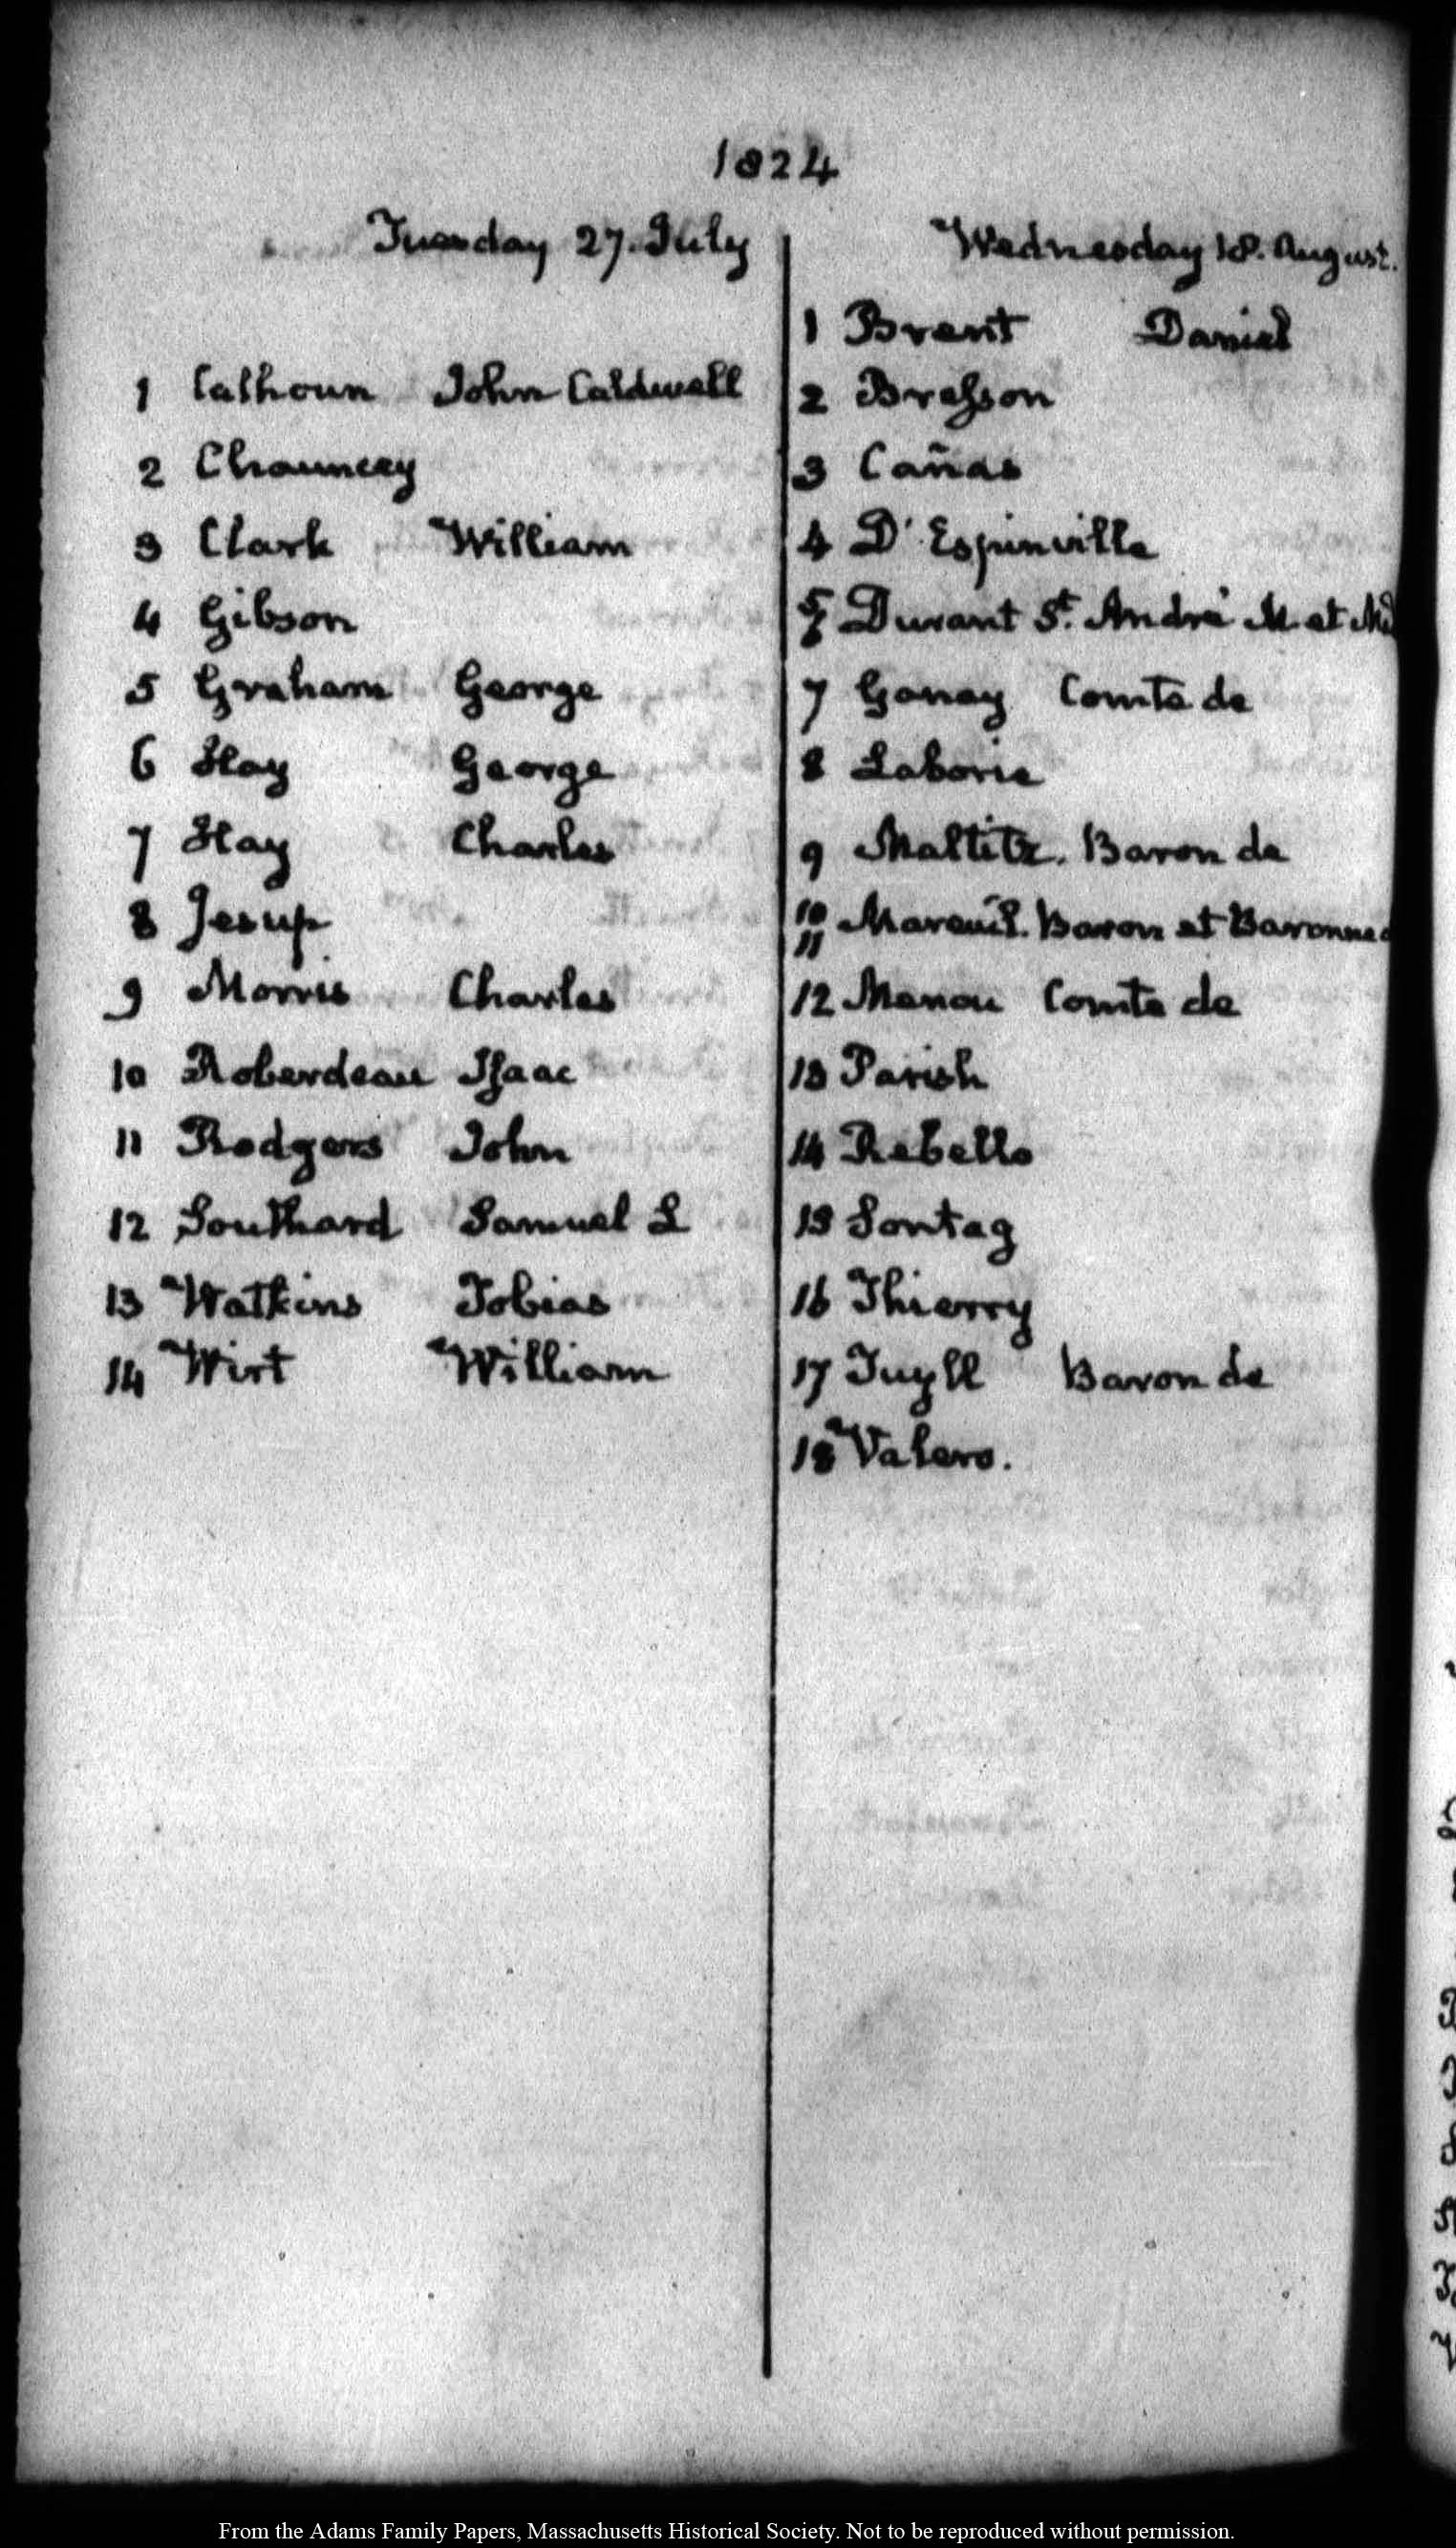 1824
Tuesday 27. July
1 Calhoun John Caldwell
2 Chauncey
3 Clark William
4 Gibson
5 Graham George
6 Hay George
7 Hay Charles
8 Jesup
9 Morris Charles
10 Roberdeau Isaac
11 Rodgers John
12 Southard Samuel L
13 Watkins Tobias
14 Wirt William
Wednesday 18. August.
1 Brent Daniel
2 Bresson
3 Cañas
4 D'Espinville
5 6 Durant St. André M et Md
7 Ganay Comte de
8 Laborie
9 Maltitz. Baron de
10 11 Mareuil. Baron et Baronne d
12 Menou Comte de
13 Parish
14 Rebello
15 Sontag
16 Thierry
17 Tuyll Baron de
18 Valero.
From the Adams Family Papers, Massachusetts Historical Society. Not to be reproduced without permission.